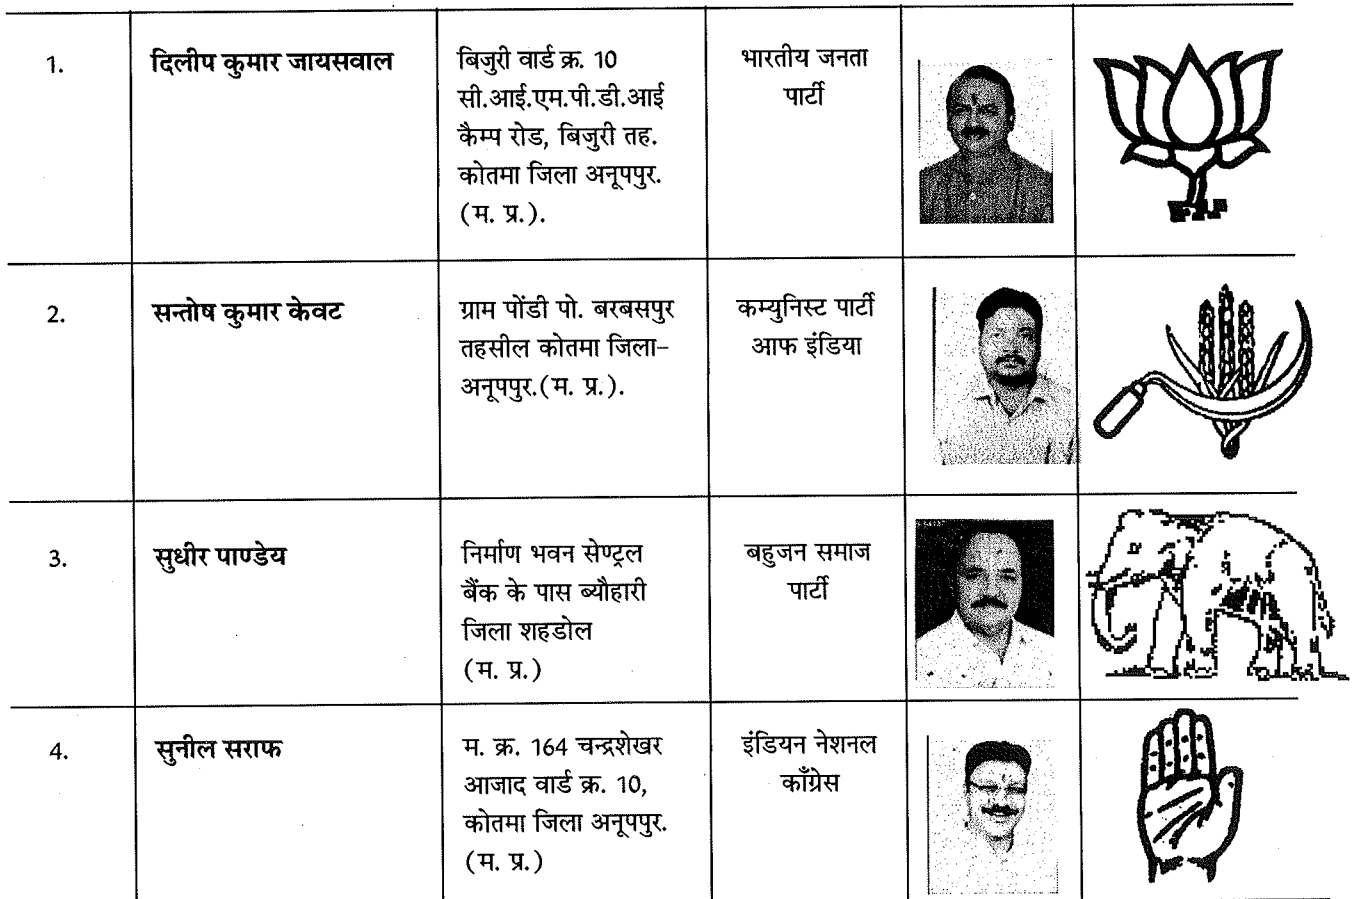 1.
दिलीप कुमार जायसवाल
बिजुरी वार्ड क्र. 10
सी.आई.एम.पी.डी.आई
कैम्प रोड, बिजुरी तह.
कोतमा जिला अनूपपुर.
(म. प्र.).
भारतीय जनता
पार्टी
2.
सन्तोष कुमार केवट
ग्राम पोंडी पो. बरबसपुर
तहसील कोतमा जिला–
अनूपपुर.(म. प्र.).
कम्युनिस्ट पार्टी
आफ इंडिया
3.
सुधीर पाण्डेय
निर्माण भवन सेण्ट्रल
बैंक के पास ब्यौहारी
जिला शहडोल
(म. प्र.)
बहुजन समाज
पार्टी
4.
सुनील सराफ
म. क्र. 164 चन्द्रशेखर
आजाद वार्ड क्र. 10,
कोतमा जिला अनूपपुर.
(म. प्र.)
इंडियन नेशनल
काँग्रेस